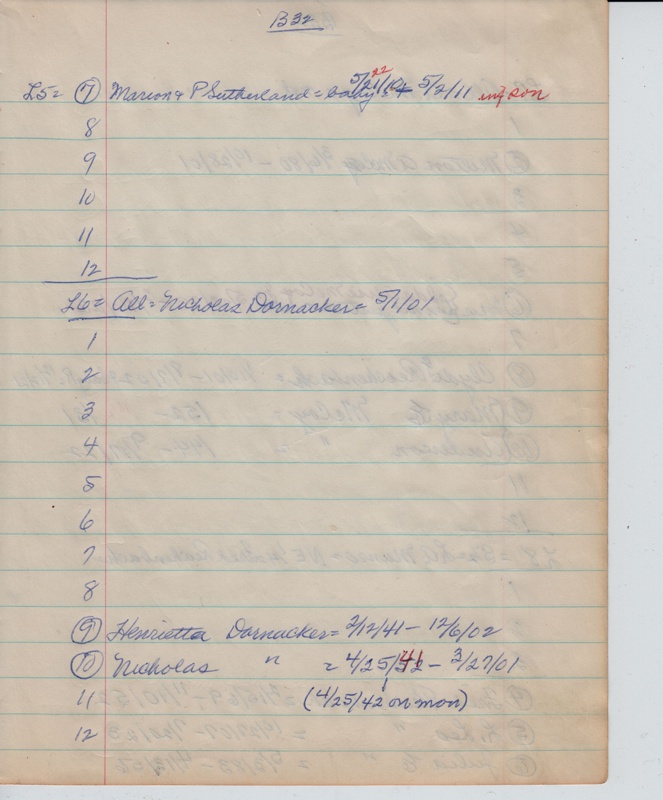 B32
L5= 7 Marion & P Sutherland = baby = 5/21/10 22 + 5/2/11 inf son
8
9
10
11
12
L6= All = Nicholas Dornacker = 5/1/01
1
2
3
4
5
6
7
8
9 Henrietta Dornacker = 2/12/41 - 12/6/02
10 Nicholas " = 4/25/41 - 3/27/01
11 (4/25/42 on mon)
12